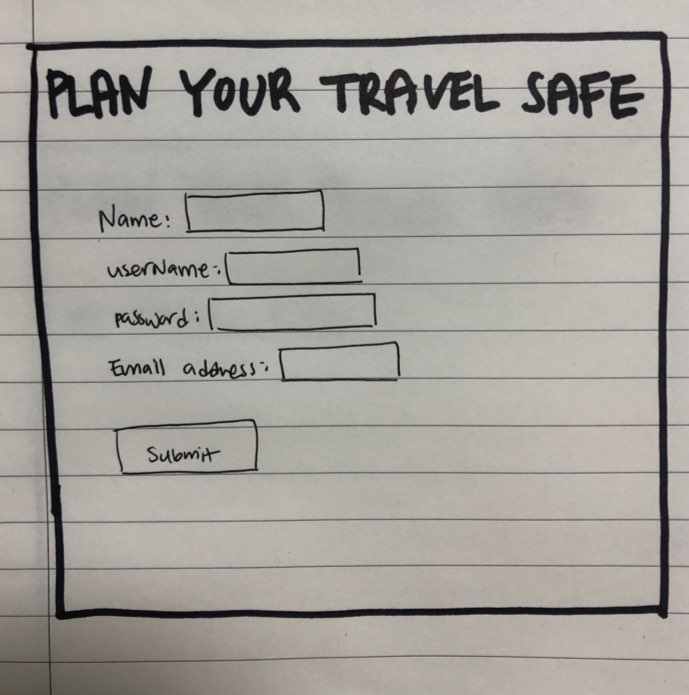 PLAN YOUR TRAVEL SAFE
Name:
userName:
password:
Email address:
Submit